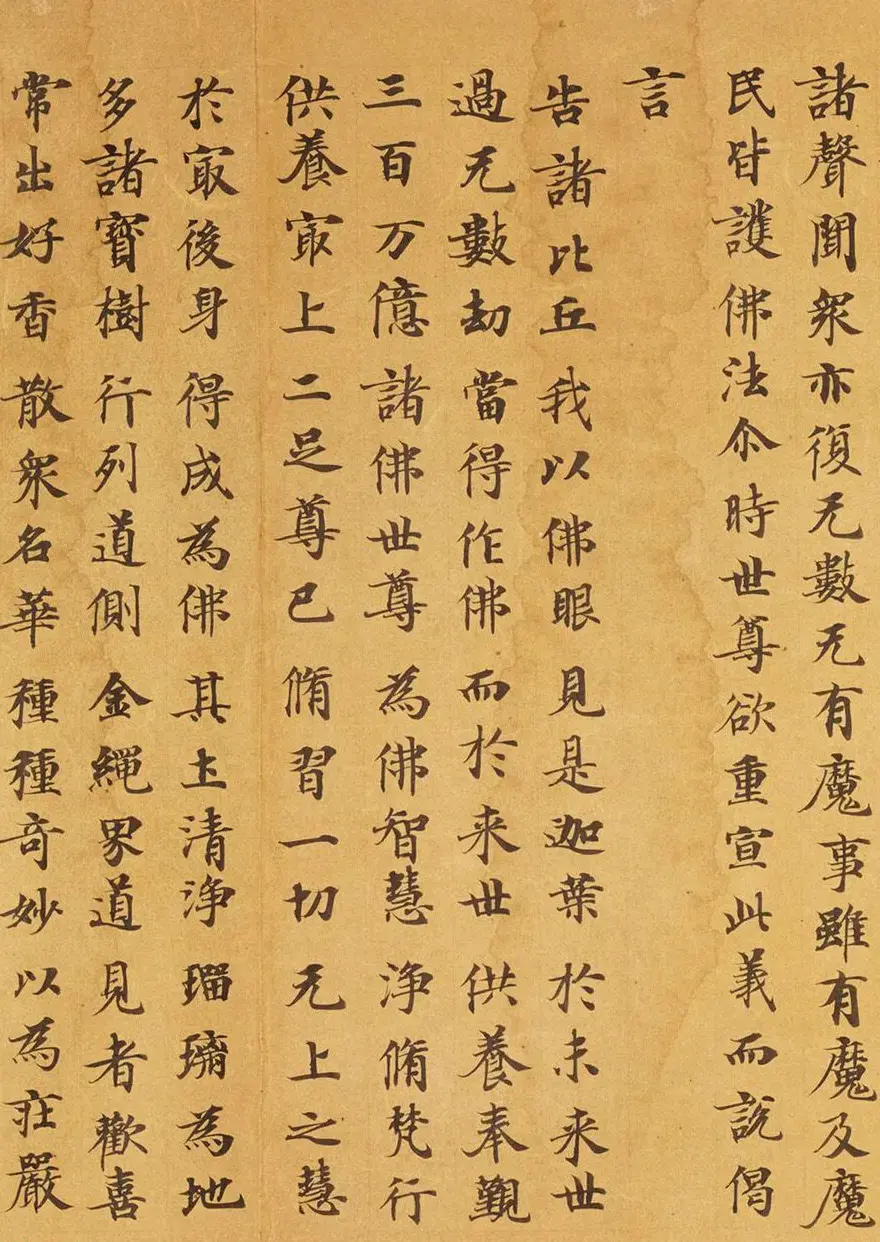 諸聲聞衆亦復无數无有魔事雖有魔及魔
民皆護佛法尒時世尊欲重宣此義而說偈
言
告諸比丘我以佛眼見是迦葉於未来世
過无數劫當得作佛而於来世供養奉覲
三百万億諸佛世尊為佛智慧淨脩梵行
供養冣上二足尊已脩習一切无上之慧
於冣後身得成為佛其土清淨瑠璃為地
多諸寶樹行列道側金繩界道見者歡喜
常出好香散衆名華種種奇妙以為莊嚴